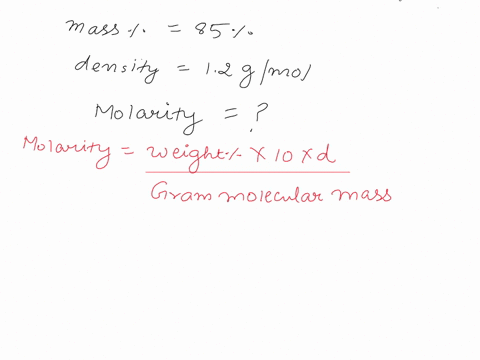 mass % = 85 %
density = 1.2 g/mol
Molarity = ?
Molarity = weight % X 10 X d
Gram molecular mass